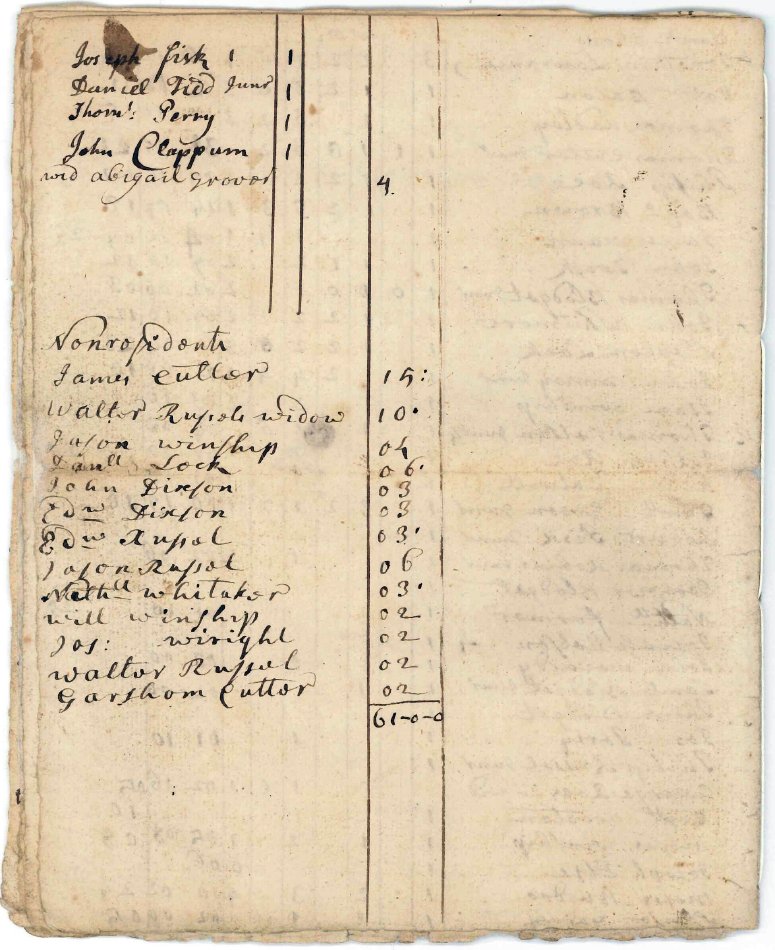 Joseph fisk 1 1
Daniel Tidd Junr 1
Thoms: Perry 1
John Clappum 1
wid abigail Grover 4.
Nonresidents
James Cutler 15:
Walter Russels widow 10.
Jason winship 04
Danll Lock 06.
John Dixson 03
Edw Dixson 03
Edw Russel 03.
Jason Russel 06
Nathll whitaker 03.
will winship 02
Jos: wiright 02
Walter Russel 02
Garshom Cutter 02
61-0-0